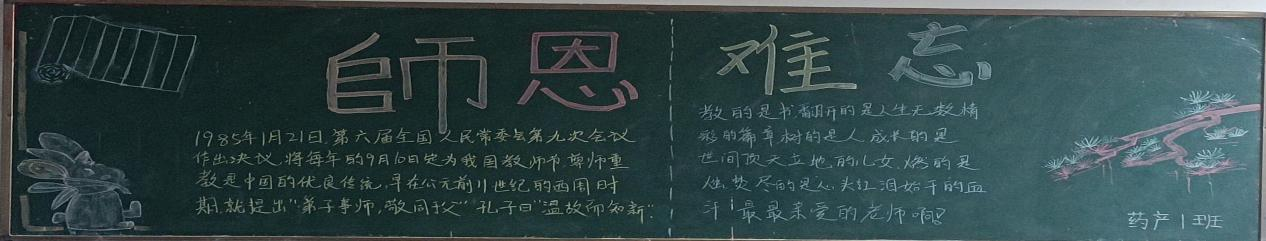 師恩难忘
1985年1月21日,第六届全国人民常委会第九次会议
作出决议,将每年的9月10日定为我国教师节.尊师重
教是中国的优良传统,早在公元前11世纪的西周时
期,就提出“弟子事师,敬同于父”孔子曰“温故而知新”.
教的是书,翻开的是人生无数精
彩的篇章,树的是人,成长的是
世间顶天立地的儿女,燃的是
烛,焚尽的是心头红泪始干的血
汗!最最亲爱的老师啊?
药产1班